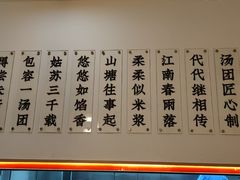 汤团匠心制
代代继相传
江南春雨落
柔柔似米浆
山塘往事起
悠悠如馅香
姑苏三千载
包容一汤团